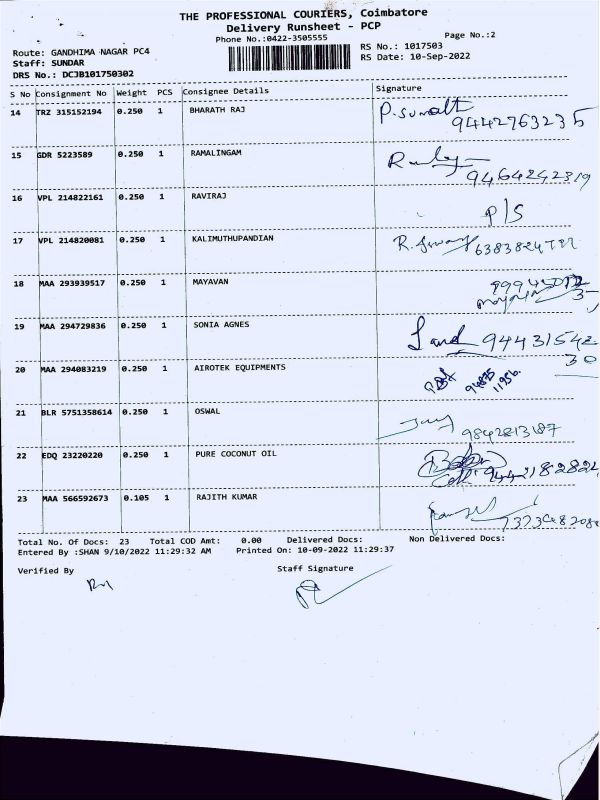 THE PROFESSIONAL COURIERS, Coimbatore
Delivery Runsheet - PCP
Phone No.:0422-3505555
Page No.:2
Route: GANDHIMA NAGAR PC4
RS No.: 1017503
Staff: SUNDAR
RS Date: 10-Sep-2022
DRS No.: DCJB101750302
S No Consignment No Weight PCS Consignee Details Signature
14 TRZ 315152194 0.250 1 BHARATH RAJ P.sumalt
9442763235
15 GDR 5223589 0.250 1 RAMALINGAM
9464242319
16 VPL 214822161 0.250 1 RAVIRAJ P/S
17 VPL 214820081 0.250 1 KALIMUTHUPANDIAN
18 MAA 293939517 0.250 1 MAYAVAN
19 MAA 294729836 0.250 1 SONIA AGNES
94431542
30
20 MAA 294083219 0.250 1 AIROTEK EQUIPMENTS
94875
11956.
21 BLR 5751358614 0.250 1 OSWAL
9842813187
22 EDQ 23220220 0.250 1 PURE COCONUT OIL
23 MAA 566592673 0.105 1 RAJITH KUMAR
Total No. Of Docs: 23 Total COD Amt: 0.00 Delivered Docs: Non Delivered Docs:
Entered By :SHAN 9/10/2022 11:29:32 AM Printed On: 10-09-2022 11:29:37
Verified By Staff Signature